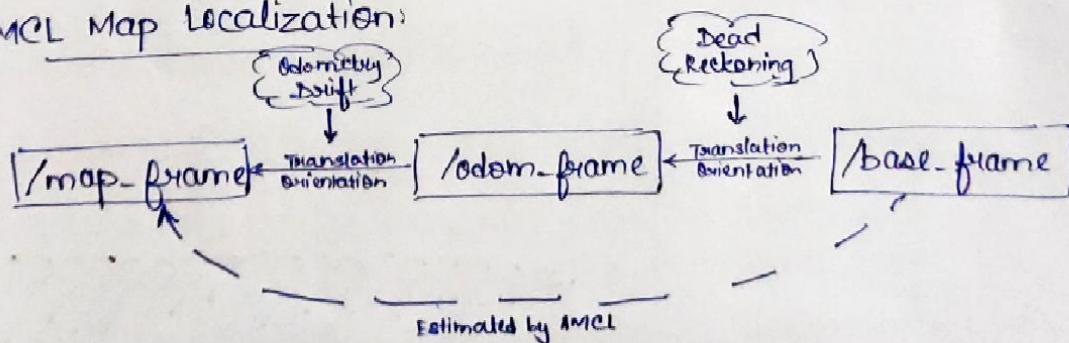 MCL Map Localization:
Odometry
Drift
Dead
Reckoning
/map_frame
Translation
Orientation
/odom_frame
Translation
Orientation
/base_frame
Estimated by AMCL